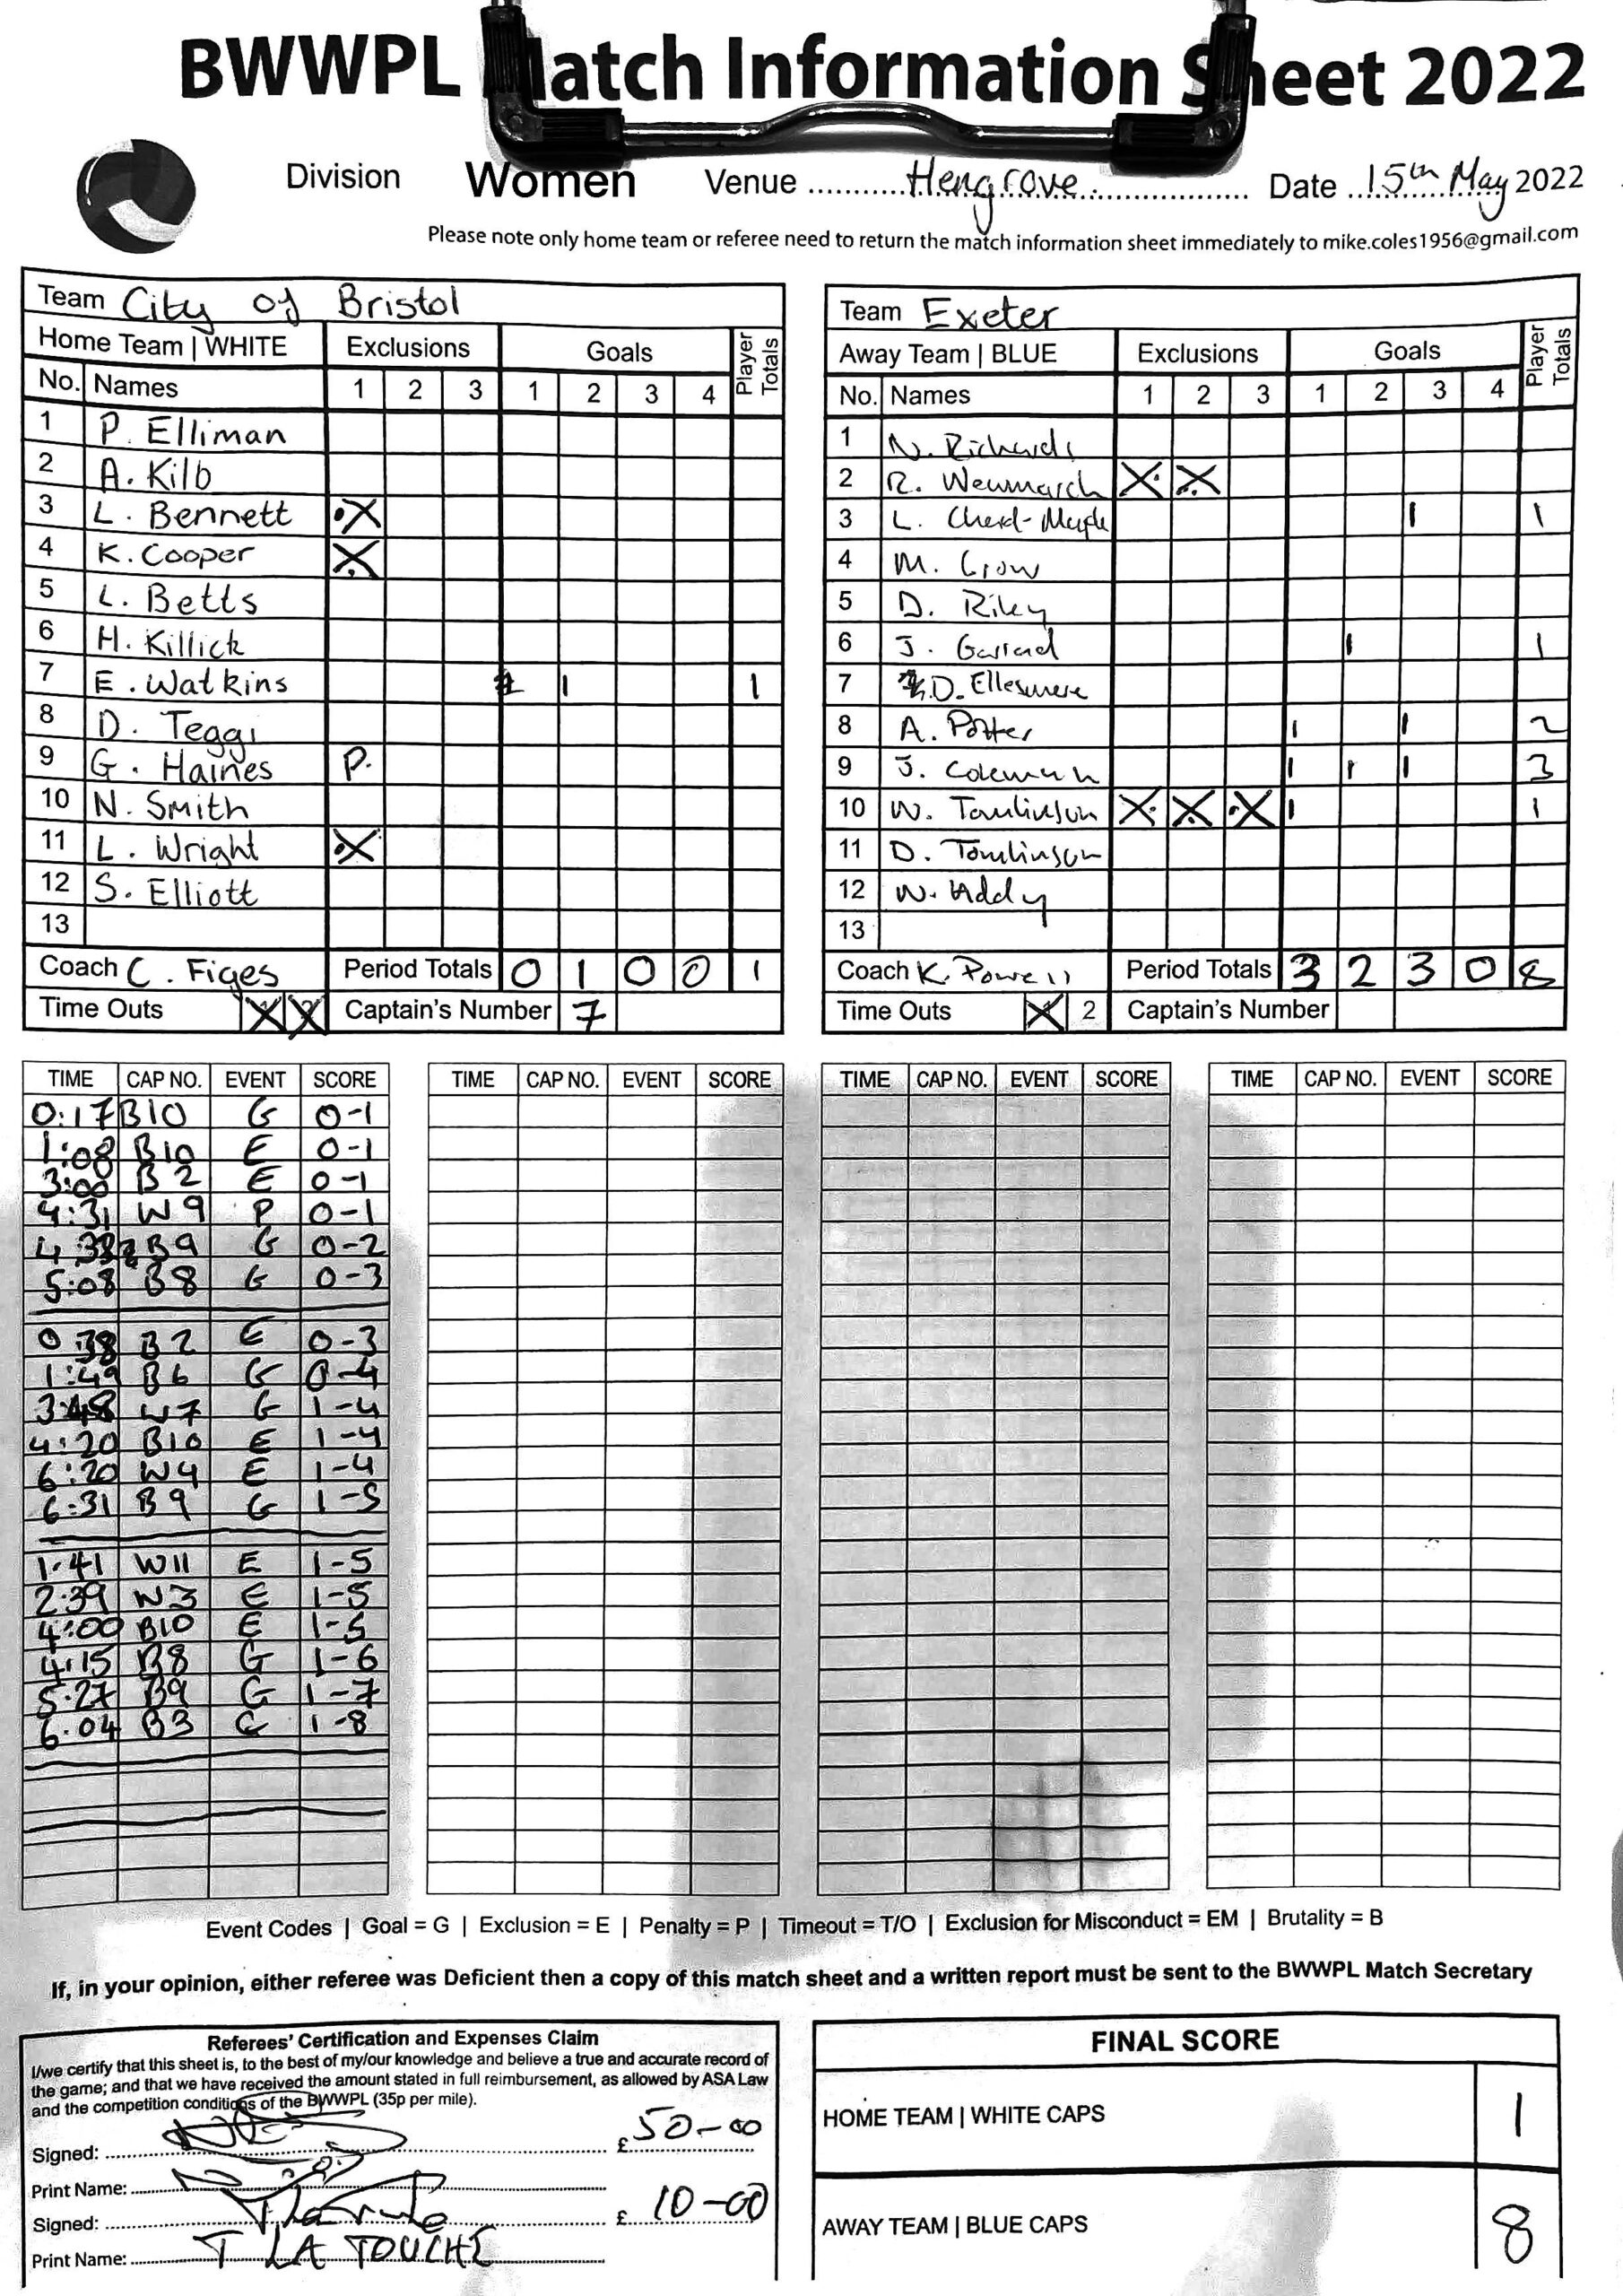 BWWPL Match Information Sheet 2022
Division Women Venue Hengrove Date 15th May 2022
Please note only home team or referee need to return the match information sheet immediately to mike.coles1956@gmail.com
Team City of Bristol
Home Team | WHITE Exclusions Goals Player Totals
No. Names 1 2 3 1 2 3 4
1 P. Elliman
2 A. Kilb
3 L. Bennett X
4 K. Cooper X
5 L. Betts
6 H. Killick
7 E. Watkins 1 1
8 D. Teggi
9 G. Haines P.
10 N. Smith
11 L. Wright X
12 S. Elliott
13
Coach C. Figes Period Totals 0 1 0 0 1
Time Outs X X Captain's Number 7
Team Exeter
Away Team | BLUE Exclusions Goals Player Totals
No. Names 1 2 3 1 2 3 4
1 N. Richards
2 R. X X
3 L. 1 1
4 M. Crow
5 D. Riley
6 J. Garrard 1 1
7 D. Ellesmere
8 A. Potter 1 1 2
9 J. Coleman 1 1 1 3
10 W. Tomlinson X X X 1 1
11 D. Tomlinson
12 W. Addy
13
Coach K. Powell Period Totals 3 2 3 0 8
Time Outs X 2 Captain's Number
TIME CAP NO. EVENT SCORE TIME CAP NO. EVENT SCORE TIME CAP NO. EVENT SCORE TIME CAP NO. EVENT SCORE
0:17 B10 G 0-1
1:08 B10 E 0-1
3:00 B2 E 0-1
4:31 W9 P 0-1
B9 G 0-2
5:08 B8 G 0-3
0:38 B2 E 0-3
1:49 B6 G 0-4
3:48 W7 G 1-4
4:20 B10 E 1-4
6:20 W4 E 1-4
6:31 B9 G 1-5
1:41 W11 E 1-5
2:39 W3 E 1-5
4:00 B10 E 1-5
4:15 B8 G 1-6
5:27 B9 G 1-7
6:04 B3 G 1-8
Event Codes | Goal = G | Exclusion = E | Penalty = P | Timeout = T/O | Exclusion for Misconduct = EM | Brutality = B
If, in your opinion, either referee was Deficient then a copy of this match sheet and a written report must be sent to the BWWPL Match Secretary
Referees' Certification and Expenses Claim
I/we certify that this sheet is, to the best of my/our knowledge and believe a true and accurate record of
the game; and that we have received the amount stated in full reimbursement, as allowed by ASA Law
and the competition conditions of the BWWPL (35p per mile).
Signed: £ 50-00
Print Name:
Signed: £ 10-00
Print Name: T LA TOUCHE
FINAL SCORE
HOME TEAM | WHITE CAPS 1
AWAY TEAM | BLUE CAPS 8